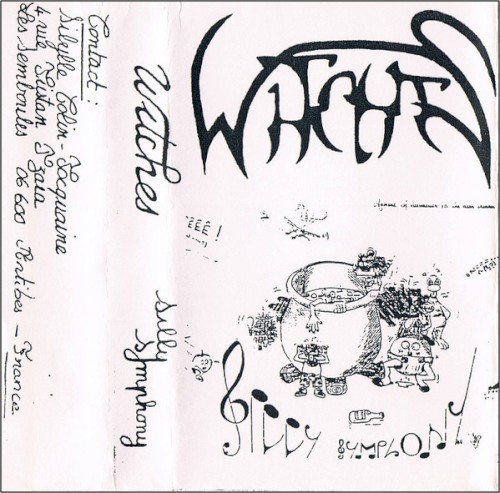 Contact :
Sibylle Colin-Tocquaine
4 rue Tristan Tzara
Les Semboules 06 600 Antibes - France
Witches
Silly
Symphony
WITCHES
EEE !
SILLY SYMPHONY